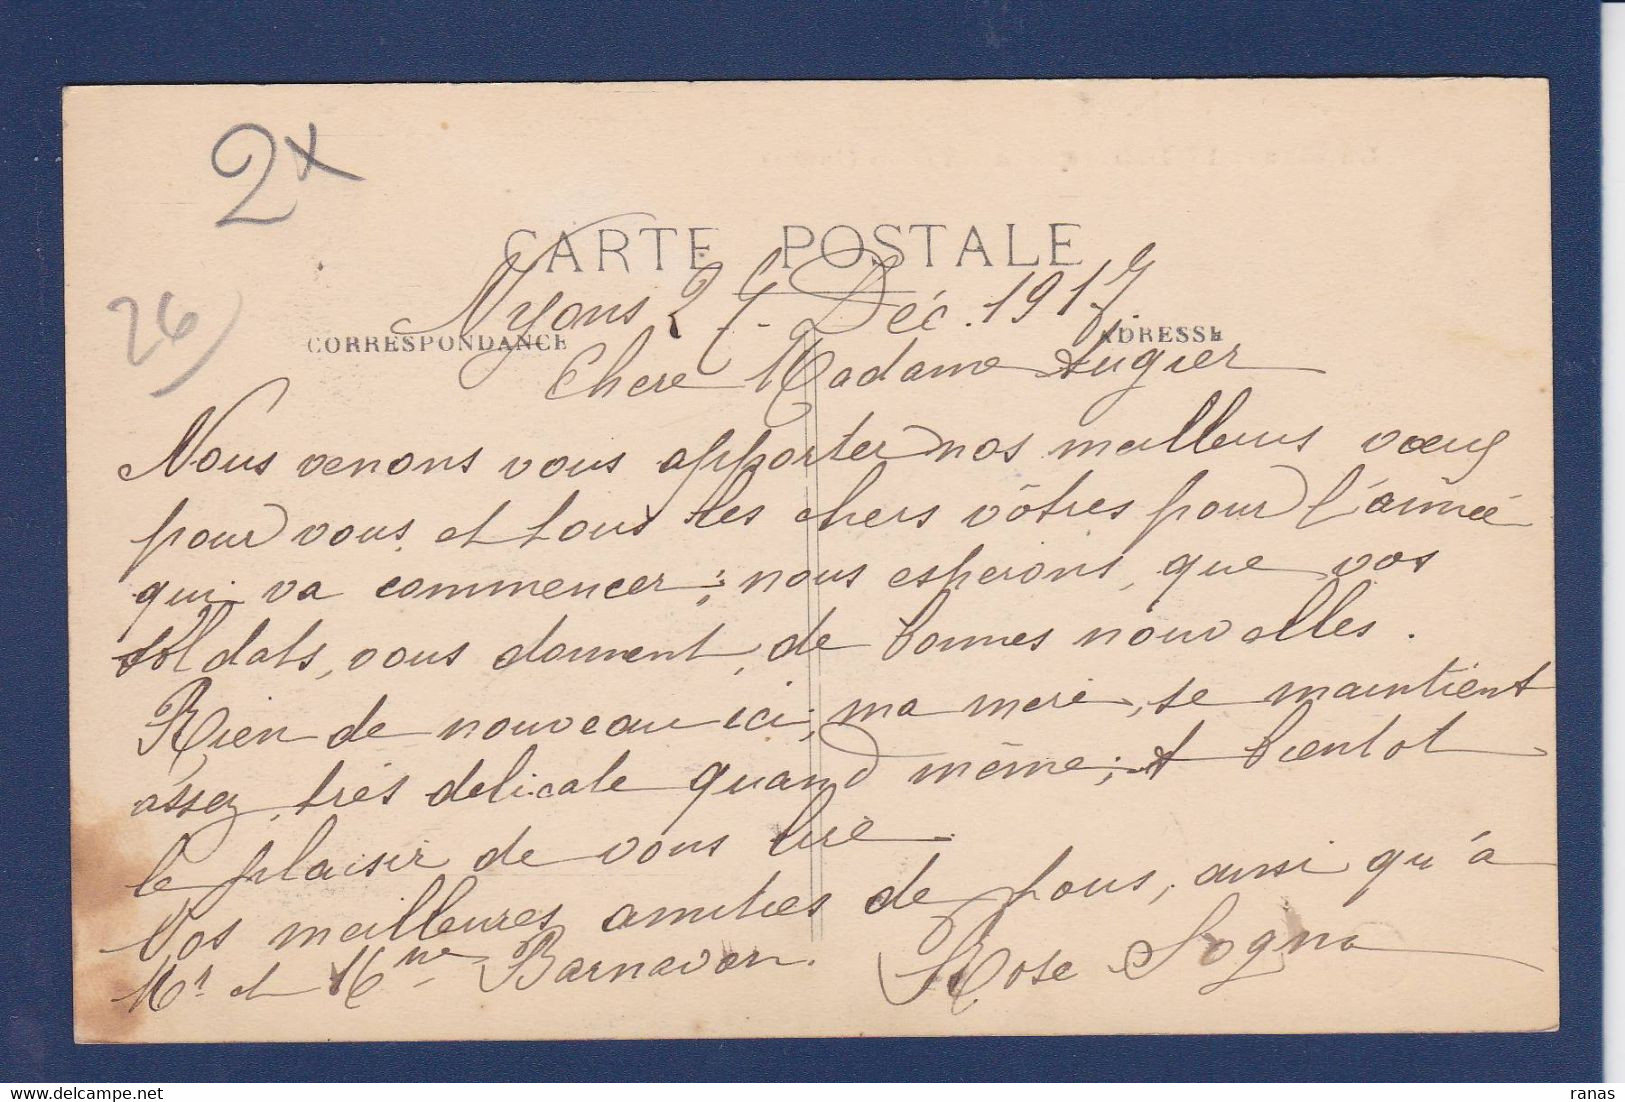 2x
26)
CARTE POSTALE
CORRESPONDANCE
ADRESSE
Nyons 27 Déc. 1917.
Chere Madame Augier
Nous venons vous apporter nos meilleurs vœux
pour vous et tous les chers vôtres pour l'année
qui va commencer; nous esperons, que vos
soldats, vous donnent, de bonnes nouvelles.
Rien de nouveau ici; ma mere, se maintient
assez, très delicate quand même; A bientot
le plaisir de vous lire.
Nos meilleures amities de tous, ainsi qu'à
Mr et Mme Barnavon. Rose Sogno
ranas